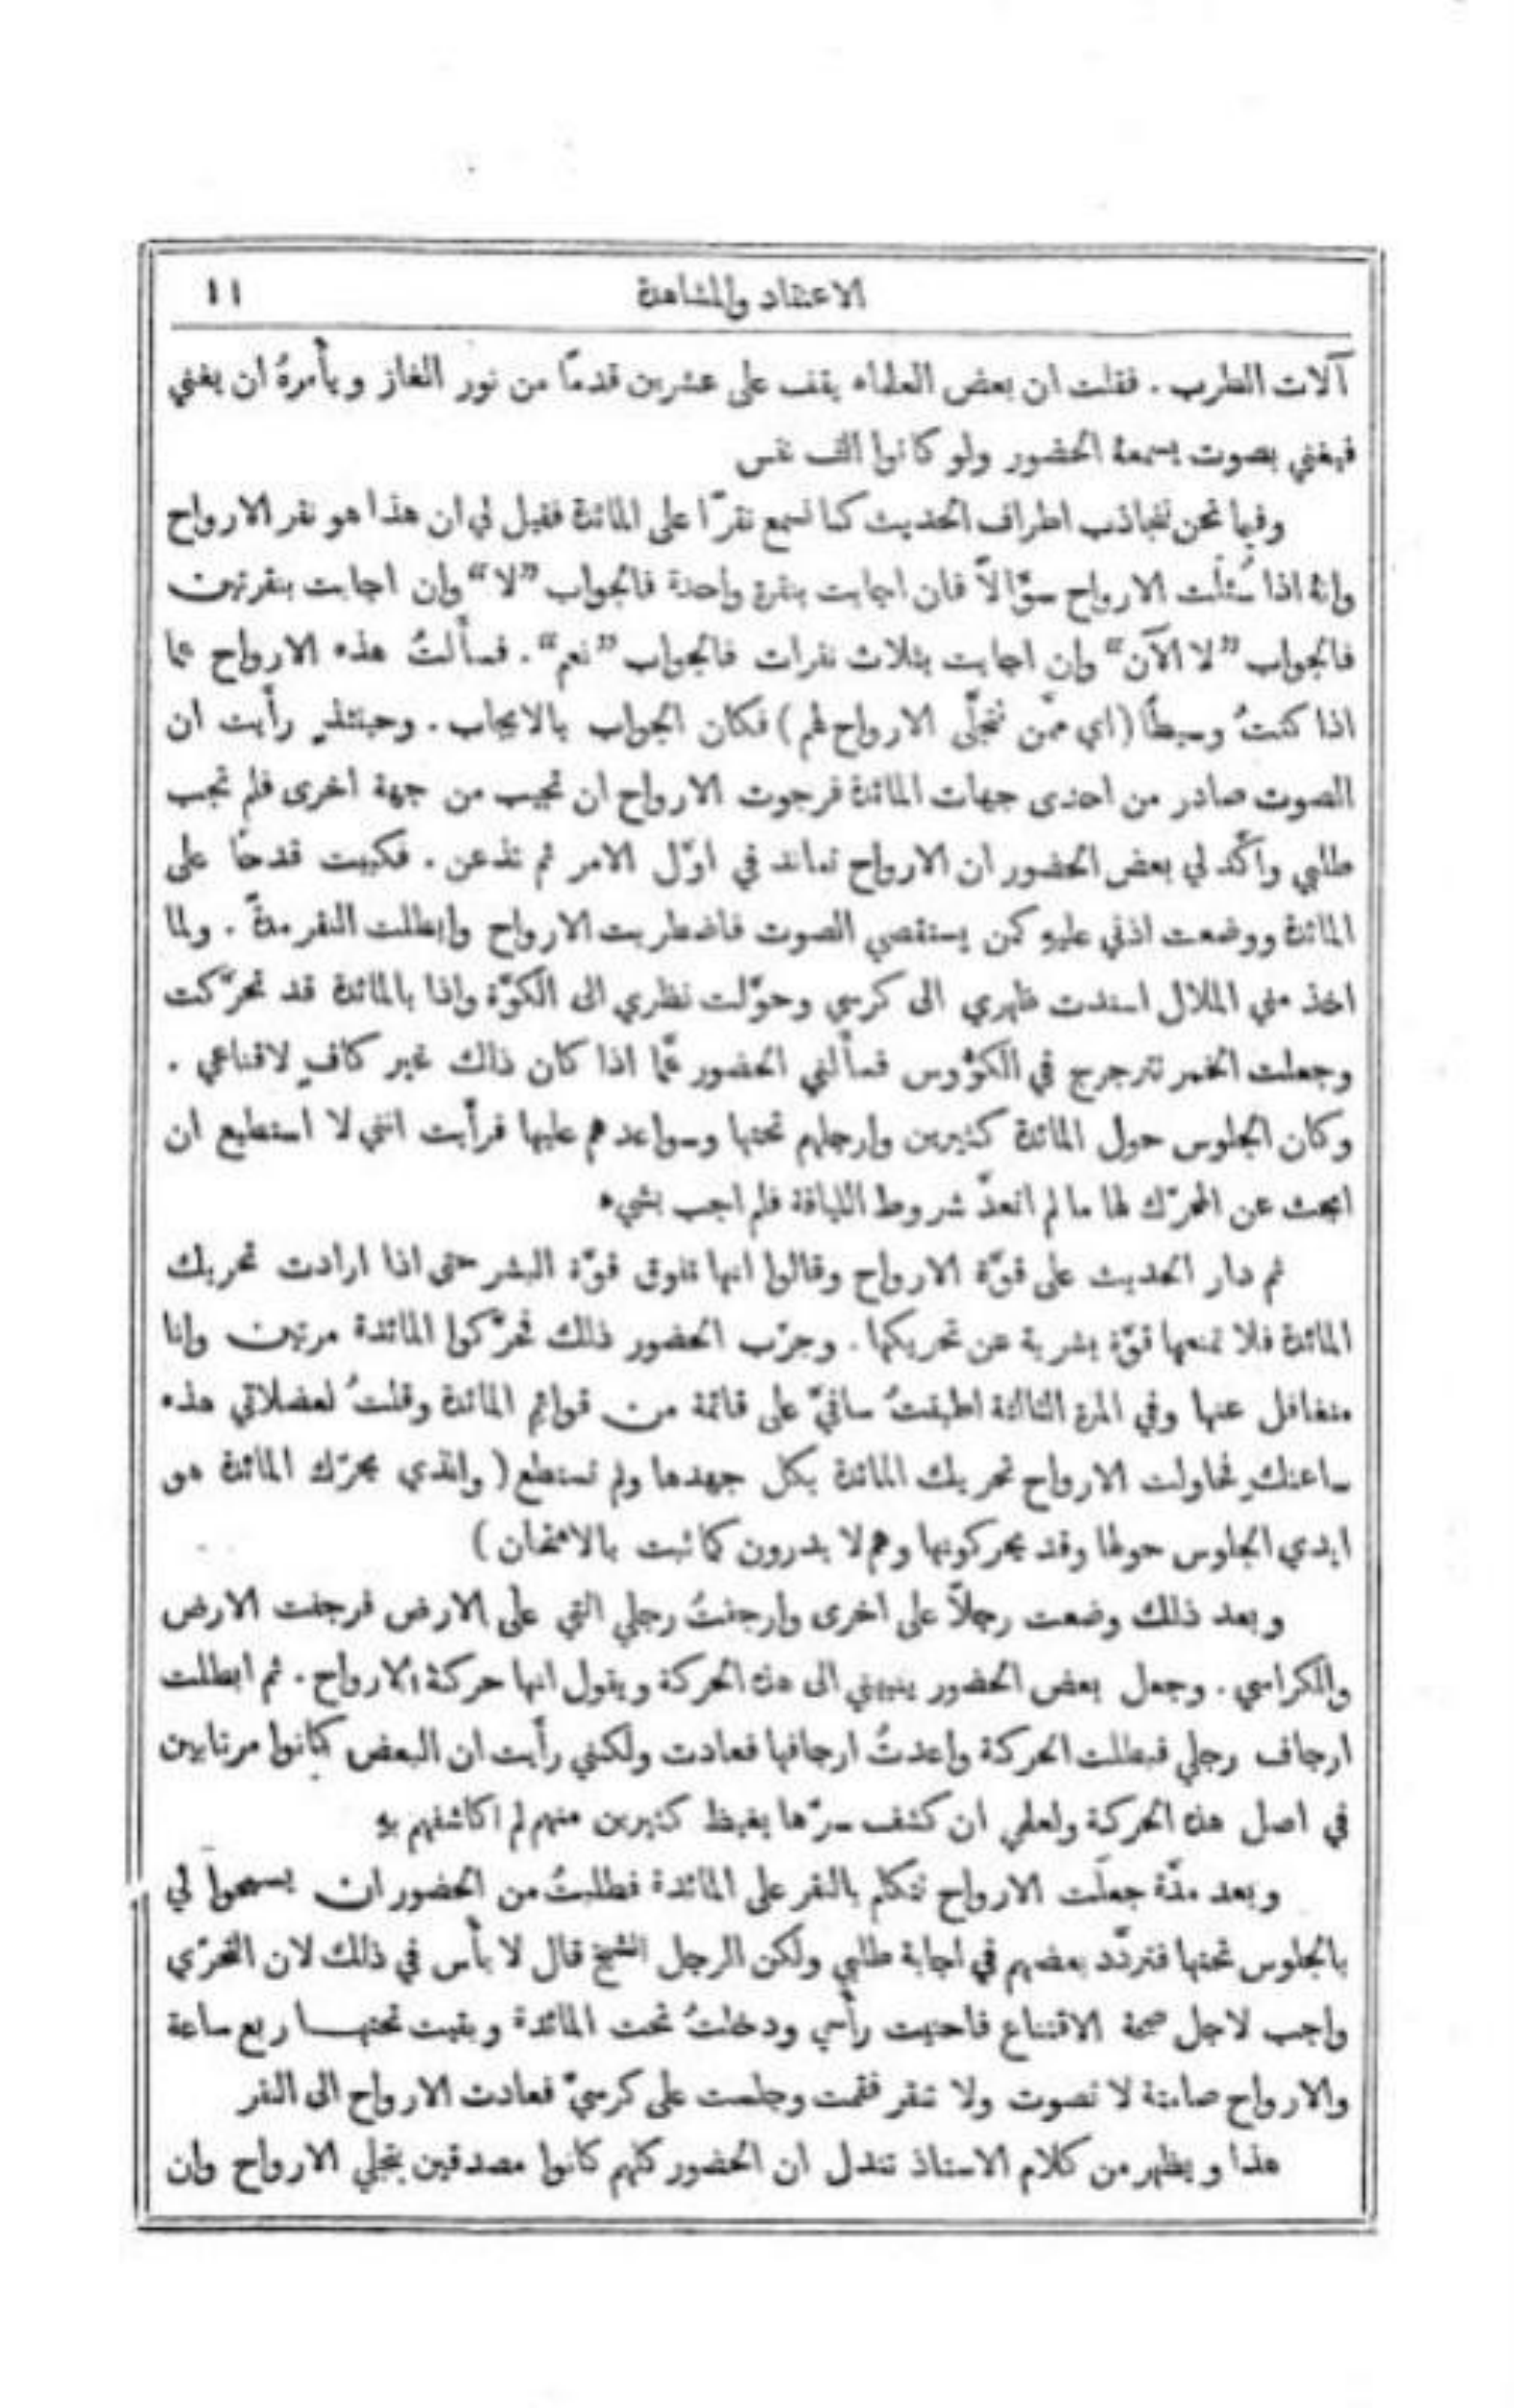 الاعتقاد والمشاهدة ١١
آلات الطرب . فقلت ان بعض العلماء يقف على عشرين قدمًا من نور الغاز ويأمرهُ ان يغني
فيغني بصوت يسمعهُ الحضور ولو كانوا الف نفس
وفيما نحن نتجاذب اطراف الحديث كنا نسمع نقرًا على المائدة فقيل لي ان هذا هو نقر الارواح
وانهُ اذا سُئلَت الارواح سؤالاً فان اجابت بنقرة واحدة فالجواب ”لا“ وان اجابت بنقرتين
فالجواب ”لا الآن“ وان اجابت بثلاث نقرات فالجواب ”نعم“ . فسألتُ هذه الارواح عما
اذا كنتُ وسيطًا (اي ممَّن تتجلَّى الارواح لهم) فكان الجواب بالايجاب . وحينئذٍ رأيت ان
الصوت صادر من احدى جهات المائدة فرجوت الارواح ان تجيب من جهة اخرى فلم تجب
طلبي واكَّد لي بعض الحضور ان الارواح تعاند في اوَّل الامر ثم تذعن . فكببت قدحًا على
المائدة ووضعت اذني عليهِ كمن يستقصي الصوت فاضطربت الارواح وابطلت النقر مدةً . ولما
اخذ مني الملال اسندت ظهري الى كرسي وحوَّلت نظري الى الكوَّة واذا بالمائدة قد تحرَّكت
وجعلت الخمر تترجرج في الكؤوس فسألني الحضور عمَّا اذا كان ذلك غير كافٍ لاقناعي .
وكان الجلوس حول المائدة كثيرين وارجلهم تحتها وسواعدهم عليها فرأيت انني لا استطيع ان
ابحث عن المحرّك لها ما لم اتعدَّ شروط اللياقة فلم اجب بشيء
ثم دار الحديث على قوَّة الارواح وقالوا انها تفوق قوَّة البشر حتى اذا ارادت تحريك
المائدة فلا تمنعها قوَّة بشرية عن تحريكها . وجرَّب الحضور ذلك فحرَّكوا المائدة مرتين وانا
متغافل عنها وفي المرة الثالثة اطبقتُ ساقيَّ على قائمة من قوائم المائدة وقلتُ لعضلاتي هذه
ساعتكِ فحاولت الارواح تحريك المائدة بكل جهدها ولم تستطع (والذي يحرّك المائدة هو
ايدي الجلوس حولها وقد يحركونها وهم لا يدرون كما ثبت بالامتحان)
وبعد ذلك وضعت رجلاً على اخرى وارجفتُ رجلي التي على الارض فرجفت الارض
والكراسي . وجعل بعض الحضور ينبهني الى هذه الحركة ويقول انها حركة الارواح . ثم ابطلت
ارجاف رجلي فبطلت الحركة واعدتُ ارجافها فعادت ولكنني رأيت ان البعض كانوا مرتابين
في اصل هذه الحركة ولعلمي ان كشف سرّها يغيظ كثيرين منهم لم اكاشفهم بهِ
وبعد مدَّة جعلَت الارواح تتكلم بالنقر على المائدة فطلبتُ من الحضور ان يسمحوا لي
بالجلوس تحتها فتردَّد بعضهم في اجابة طلبي ولكن الرجل الشيخ قال لا بأس في ذلك لان التحرّي
واجب لاجل صحة الاقتناع فاحنيت رأسي ودخلتُ تحت المائدة وبقيت تحتهـــا ربع ساعة
والارواح صامتة لا تصوت ولا تنقر فقمت وجلست على كرسيَّ فعادت الارواح الى النقر
هذا ويظهر من كلام الاستاذ تندل ان الحضور كلهم كانوا مصدقين بتجلي الارواح وان